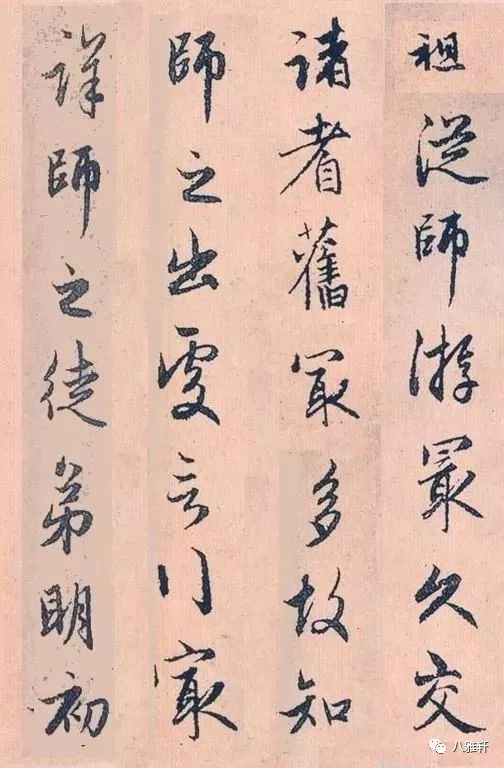 祖從師游最久交
諸耆舊冣多故知
師之出處言行冣
詳師之徒弟明初
八雅轩